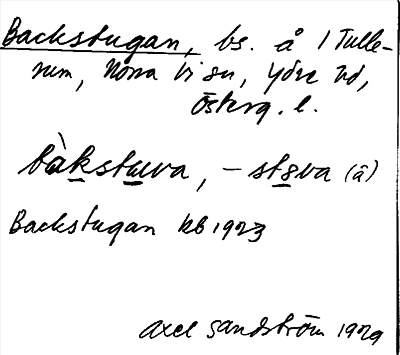 Backstugan, bs. å 1 Tulle-
rum, Norra Vi sn, Ydre hd,
Österg. l.
bàkstuva, -stɜva (â)
Backstugan kb 1923
Axel Sandström 1929